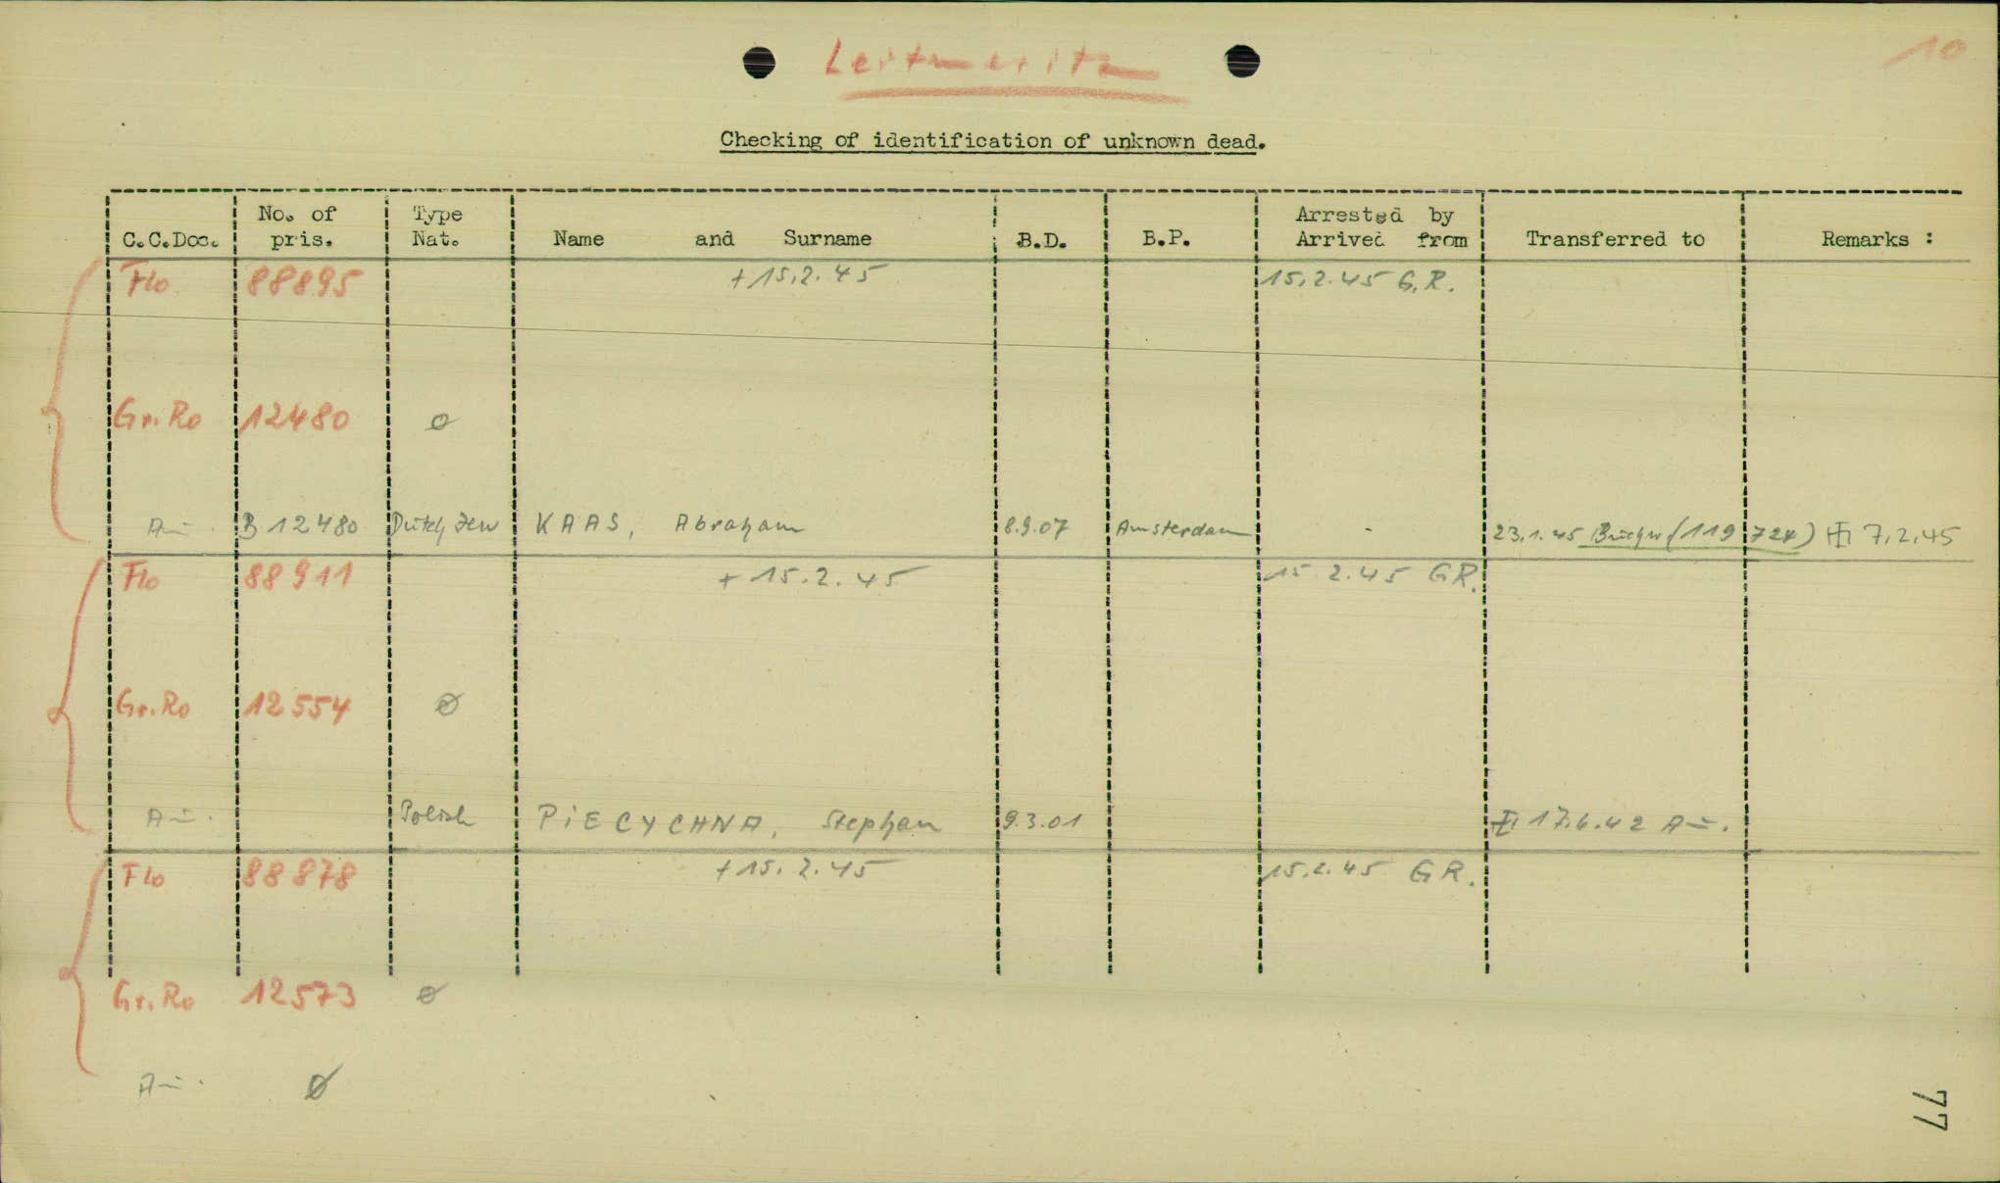 Leitmeritz
10
Checking of identification of unknown dead.
C.C.Doc. No. of pris. Type Nat. Name and Surname B.D. B.P. Arrested by Arrived from Transferred to Remarks :
Flo 88895 + 15.2.45 15.2.45 G.R.
Gr.Ro 12480 ø
Au. B 12480 Dutch Jew KAAS, Abraham 8.9.07 Amsterdam - 23.1.45 Buchw (119724) 7.2.45
Flo 88911 + 15.2.45 15.2.45 GR.
Gr.Ro 12554 ø
Au. Polish PiECYCHNA, Stephan 9.3.01 17.6.42 Au.
Flo 88878 + 15.2.45 15.2.45 GR.
Gr.Ro 12573 ø
Au. ø
77